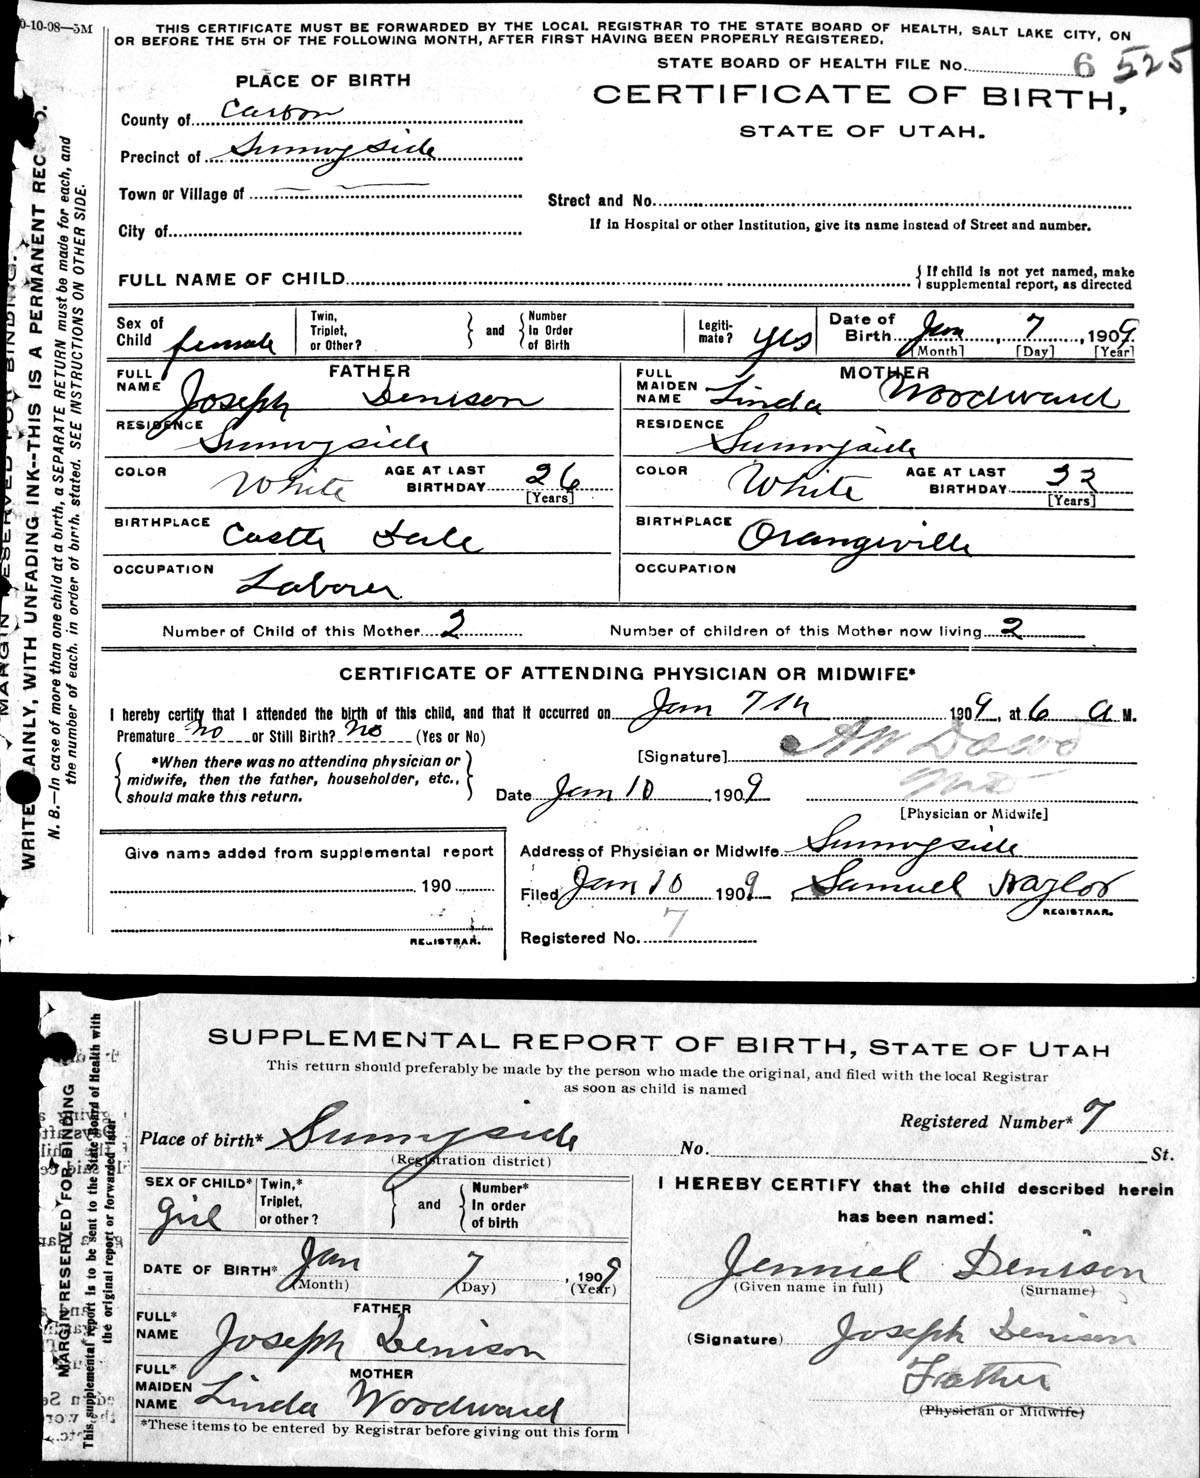 0-10-08—5M
THIS CERTIFICATE MUST BE FORWARDED BY THE LOCAL REGISTRAR TO THE STATE BOARD OF HEALTH, SALT LAKE CITY, ON
OR BEFORE THE 5TH OF THE FOLLOWING MONTH, AFTER FIRST HAVING BEEN PROPERLY REGISTERED.
STATE BOARD OF HEALTH FILE No. 6 525
PLACE OF BIRTH
CERTIFICATE OF BIRTH,
STATE OF UTAH.
County of Carbon
Precinct of Sunnyside
Town or Village of
Street and No.
City of
If in Hospital or other Institution, give its name instead of Street and number.
FULL NAME OF CHILD
If child is not yet named, make
supplemental report, as directed
Sex of Child female Twin, Triplet, or Other? and Number In Order of Birth Legiti-mate? yes Date of Birth Jan 7, 1909
[Month] [Day] [Year]
FATHER MOTHER
FULL NAME Joseph Denison FULL MAIDEN NAME Linda Woodward
RESIDENCE Sunnyside RESIDENCE Sunnyside
COLOR White AGE AT LAST BIRTHDAY 26 [Years] COLOR White AGE AT LAST BIRTHDAY 22 [Years]
BIRTHPLACE Castle Dale BIRTHPLACE Orangeville
OCCUPATION Laborer OCCUPATION
Number of Child of this Mother 2 Number of children of this Mother now living 2
CERTIFICATE OF ATTENDING PHYSICIAN OR MIDWIFE*
I hereby certify that I attended the birth of this child, and that it occurred on Jan 7th 1909, at 6 a M.
Premature no or Still Birth? no (Yes or No)
*When there was no attending physician or
midwife, then the father, householder, etc.,
should make this return.
[Signature] A W Dowd
Date Jan 10, 1909
[Physician or Midwife]
Give name added from supplemental report
190
REGISTRAR.
Address of Physician or Midwife Sunnyside
Filed Jan 10 1909 Samuel Naylor
REGISTRAR.
Registered No. 7
MARGIN RESERVED FOR BINDING.
AINLY, WITH UNFADING INK--THIS IS A PERMANENT REC
N. B.—In case of more than one child at a birth, a SEPARATE RETURN must be made for each, and
the number of each, in order of birth, stated. SEE INSTRUCTIONS ON OTHER SIDE.
SUPPLEMENTAL REPORT OF BIRTH, STATE OF UTAH
This return should preferably be made by the person who made the original, and filed with the local Registrar
as soon as child is named
Registered Number* 7
Place of birth* Sunnyside No. St.
(Registration district)
SEX OF CHILD* girl Twin,* Triplet, or other? and Number* In order of birth
I HEREBY CERTIFY that the child described herein
has been named:
DATE OF BIRTH* Jan 7, 1909
(Month) (Day) (Year)
Jenniel Denison
(Given name in full) (Surname)
FATHER
FULL* NAME Joseph Denison
(Signature) Joseph Denison
Father
(Physician or Midwife)
MOTHER
FULL* MAIDEN NAME Linda Woodward
*These items to be entered by Registrar before giving out this form
MARGIN RESERVED FOR BINDING
This supplemental report is to be sent to the State Board of Health with
the original report or forwarded later